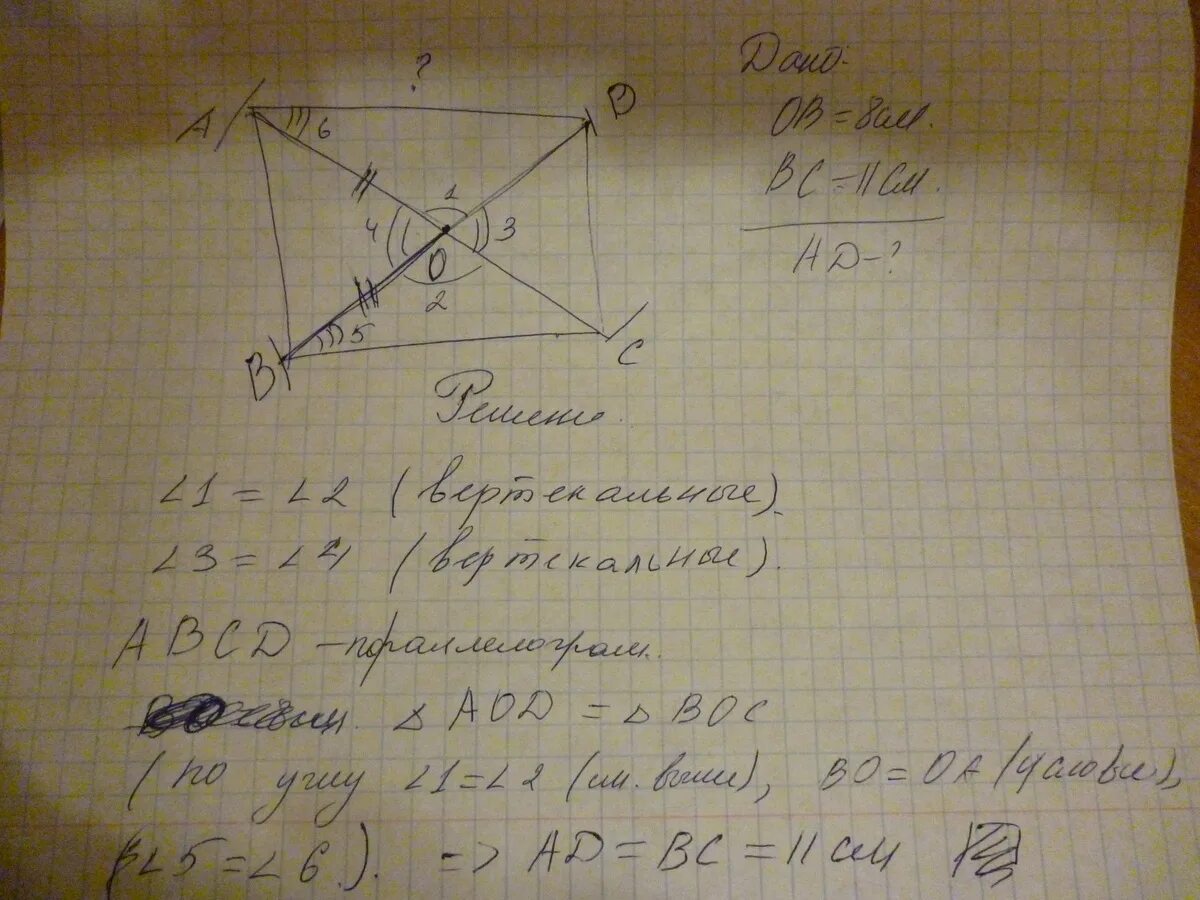 ?
A
6
В
Дано:
OB = 8 см.
BC = 11 см.
AD - ?
1
4
3
O
2
5
B
C
Решение.
∠1 = ∠2 (вертекальные).
∠3 = ∠4 (вертекальные).
ABCD - параллелограм.
△ AOD = △ BOC
(по углу ∠1 = ∠2 (см. выше), BO = OA (условие),
∠5 = ∠6.). => AD = BC = 11 см